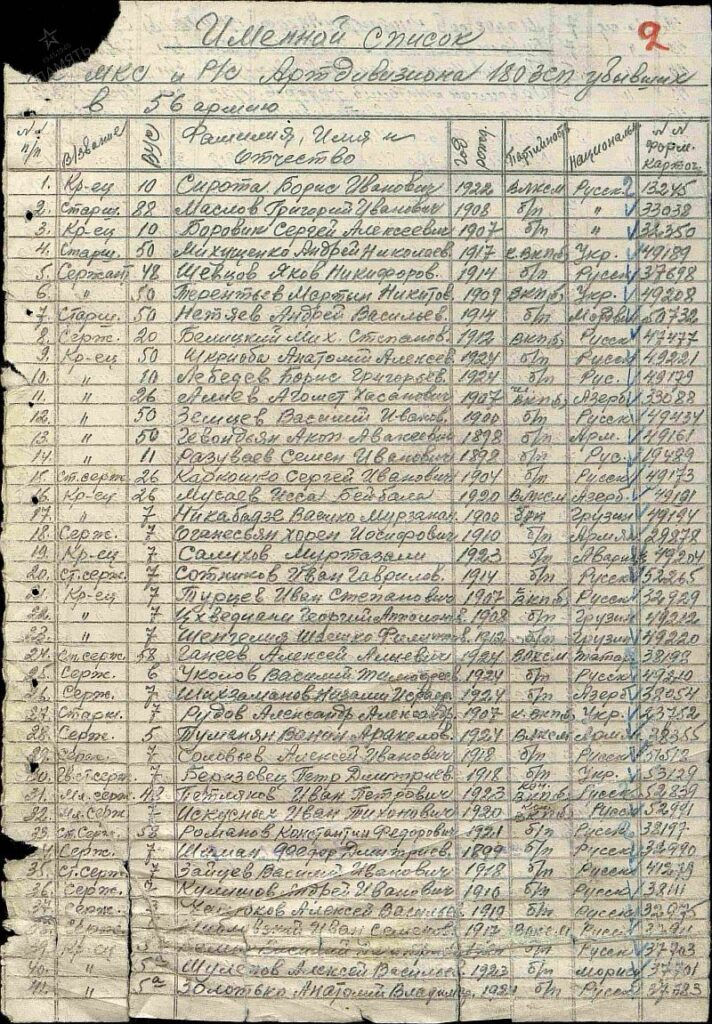 Именной список
9
МКС и Р/С Артдивизиона 180 ЗСП убывших
в 56 армию
№№ п/п В/звание ВУС Фамилия, Имя и Отчество год рожд. Партийность Национальн. №№ форм. карточ.
1. Кр-ец 10 Сирота Борис Иванович 1922 Влксм Русск 13245
2. Старш. 88 Маслов Григорий Иванович 1908 б/п " 33038
3. Кр-ец 10 Боровик Сергей Алексеевич 1907 б/п "
4. Старш. 50 Михущенко Андрей Николаев. 1917 к.ВКПб. Укр. 49189
5. Сержант 48 Шевцов Яков Никифоров. 1914 б/п Русск 37698
6. " 50 Терентьев Мартин Никитов. 1909 ВКПб. Укр. 49208
7. Старш. 50 Нетяев Андрей Васильев. 1914 б/п 50732
8. Серж. 20 Белицкий Мих. Степанов. 1912 ВКПб. Русск 47477
9. Кр-ец 50 Анатолий Алексеев 1924 б/п Русск 49221
10. " 10 Лебедев Борис Григорьев. 1924 б/п Рус. 49179
11. " 26 Алиев Агомет Хасанович 1907 ВКПб. Азерб 33088
12. " 50 Земцев Василий Иванов. 1900 б/п Русск 49434
13. " 50 Гевондьян Акоп 1898 б/п Арм. 49161
14. " 11 Разуваев Семен Иванович 1898 б/п Рус. 19489
15. Ст.серж. 26 Сергей Иванович 1904 б/п Русск 49173
16. Кр-ец 26 Мусаев Исса Бейбала 1920 Влксм Азерб. 49191
17. " 7 Никабадзе Васико 1900 б/п Грузин 49194
18. Серж. 7 Оганесьян Хорен Иосифович 1910 б/п Армян 29878
19. Кр-ец 7 Салихов Муртазали 1923 б/п Авариц 49204
20. Ст.серж. 7 Сотников Иван Гаврилов. 1914 б/п Русск 52265
21. Кр-ец 7 Турцев Иван Степанович 1907 ВКПб. Русск 32929
22. " 7 Цхведиани Георгий 1908 б/п Грузин 49212
23. " 7 Шенгелия 1912 б/п Грузин 49220
24. Ст.серж. 58 Ганеев Алексей Алиевич 1924 Влксм Татар 38199
25. Серж. 6 Уколов Василий 1924 б/п Русск 49210
26. Серж. 7 Шихзаманов Низами 1924 б/п Азерб 38054
27. Старш. 7 Рудов Александр Александр. 1907 к.ВКПб. Укр. 23752
28. Серж. 5 Туманян Ваней Аракелов. 1924 Влксм Армян 38355
29. Серж. 7 Соловьев Алексей Иванович 1918 б/п Русск
30. 7 Березовец Петр Дмитриев. 1918 б/п Укр. 53129
31. Мл.серж. 43 Петляков Иван Петрович 1923 ВКПб. Русск 52839
32. Мл.серж. 7 Искусных Иван Тихонович 1920 ВКПб. Русск 52991
33. Ст.серж. 58 Романов Константин Федорович 1921 б/п Русск 38197
Серж. 7 Шаман Федор Дмитриев. 1899 б/п Русск 32990
35. Ст.серж. 7 Зайцев Василий Иванович 1918 б/п Русск 41279
36. Серж. Андрей Иванович 1910 б/п Русск 38111
37. Серж. Алексей Васильев. 1919 б/п Русск 32975
Иван Семенов. 1917 Влксм Русск
39. Кр-ец б/п Русск 37703
40. " 5а Шулепов Алексей Васильев. 1923 б/п 37701
41. " 5а Золотько Анатолий Владимир. 1924 б/п Русск 37783